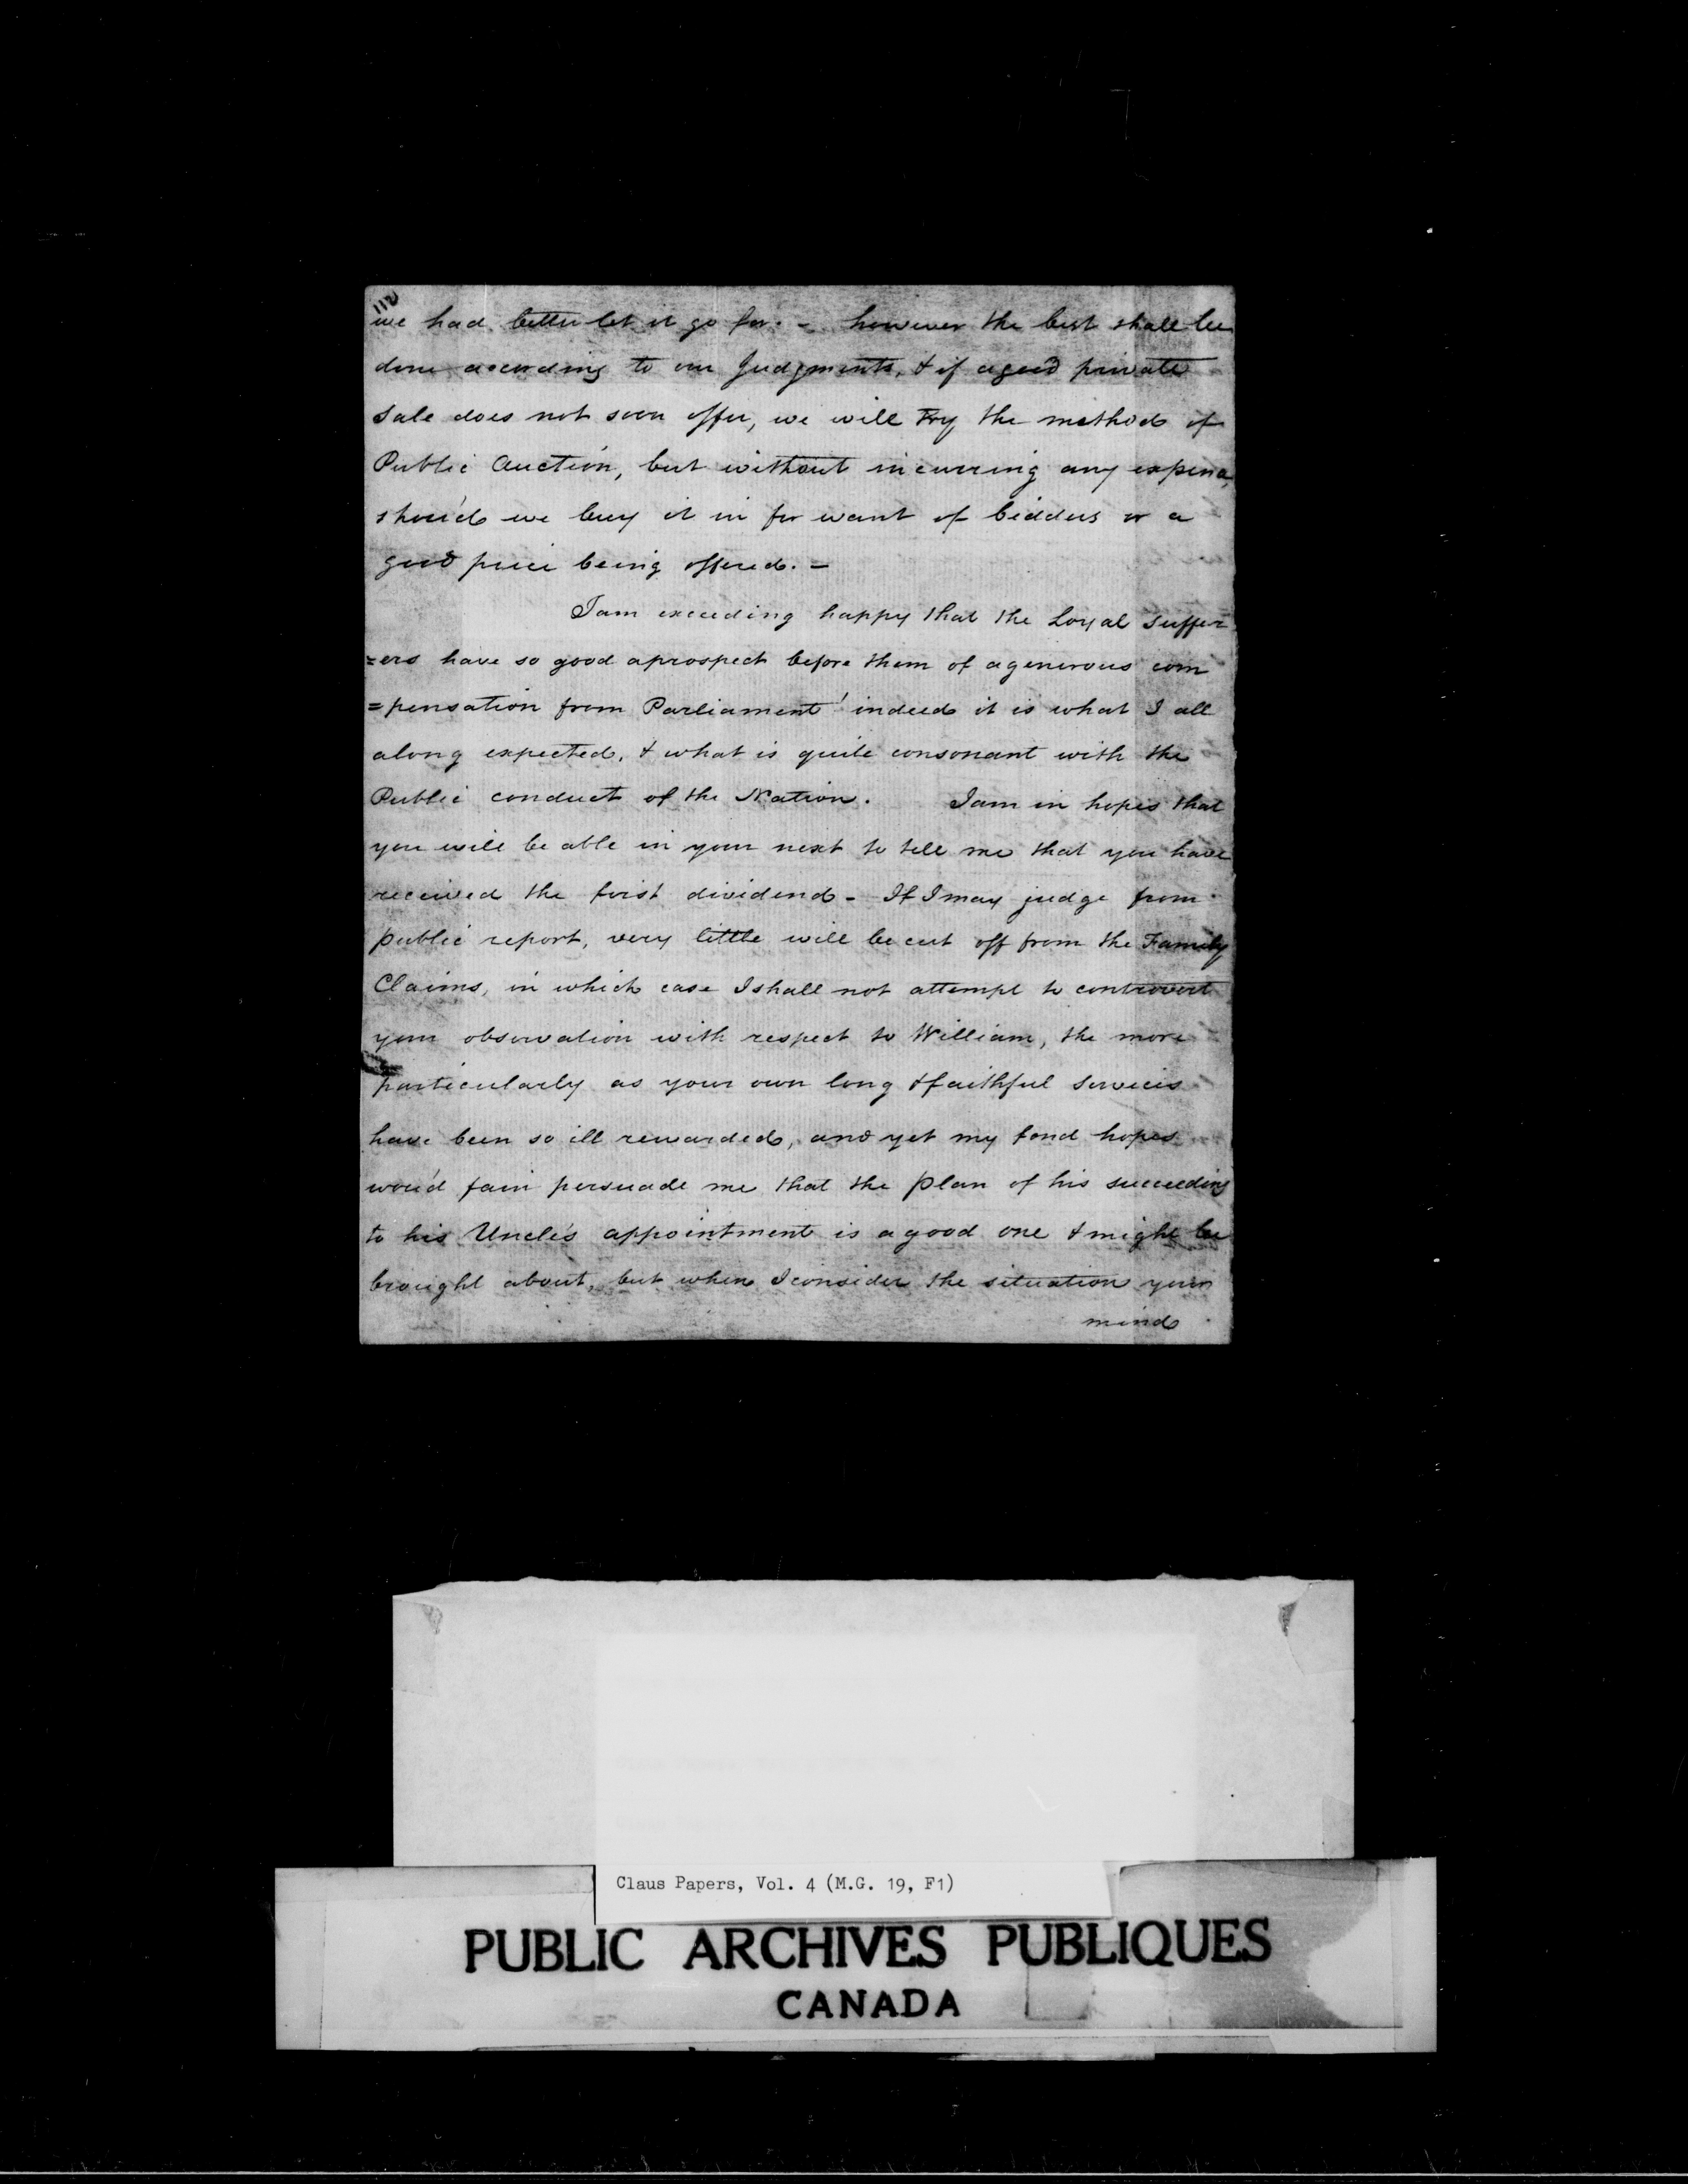 112
we had better let it go for. - however the best shall be
done according to our Judgments, & if a good private
Sale does not soon offer, we will try the method of
Public Auction, but without incurring any expence,
shou'd we buy it in for want of bidders or a
good price being offered. -
I am exceeding happy that the Loyal Suffer
=ers have so good a prospect before them of a generous com
=pensation from Parliament indeed it is what I all
along expected, & what is quite consonant with the
Public conduct of the Nation. I am in hopes that
you will be able in your next to tell me that you have
received the first dividend - If I may judge from
public report, very little will be cut off from the Family
Claims, in which case I shall not attempt to controvert
your observation with respect to William, the more
particularly as your own long & faithful Services
have been so ill rewarded, and yet my fond hopes
wou'd fain persuade me that the plan of his succeeding
to his Uncle's appointment is a good one & might be
brought about, but when I consider the situation your
mind
Claus Papers, Vol. 4 (M.G. 19, F1)
PUBLIC ARCHIVES PUBLIQUES
CANADA